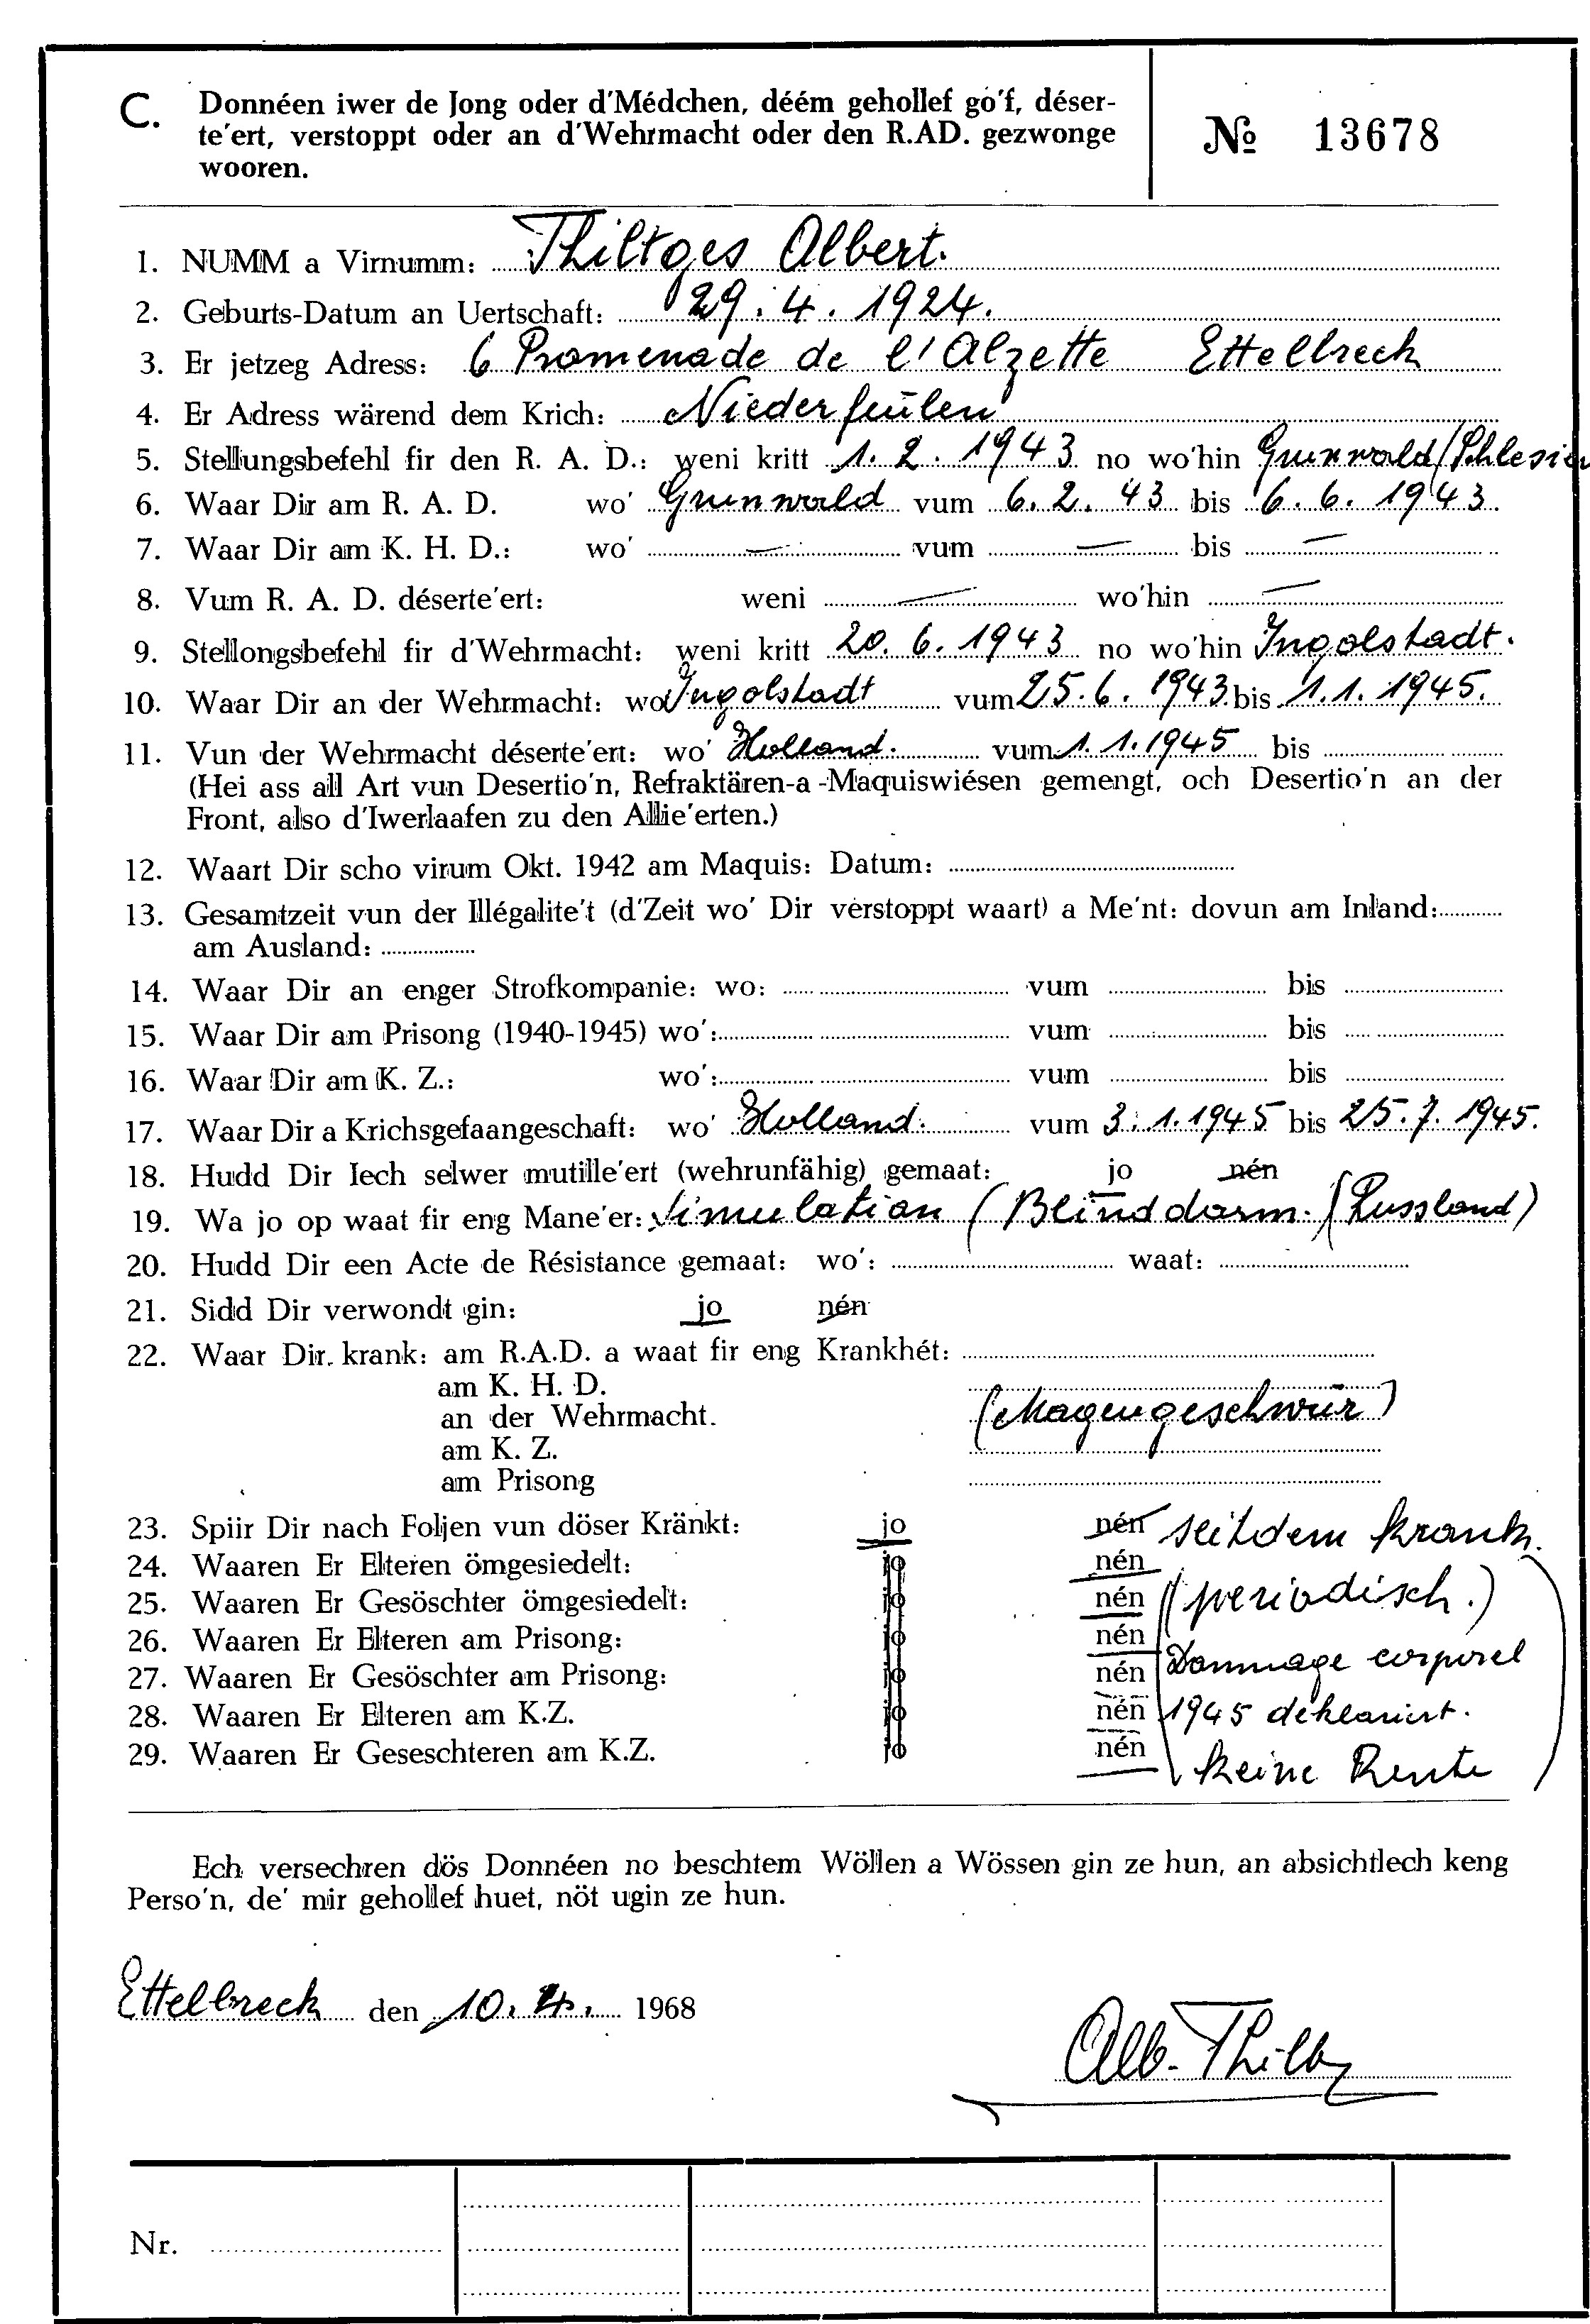 C. Donnéen iwer de Jong oder d'Médchen, déém gehollef go'f, déser-
te'ert, verstoppt oder an d'Wehrmacht oder den R.AD. gezwonge
wooren.
№ 13678
1. NUMM a Virnumm: Thiltges Albert.
2. Geburts-Datum an Uertschaft: 29.4.1924.
3. Er jetzeg Adress: 6 Promenade de l'Alzette Ettelbreck
4. Er Adress wärend dem Krich: Niederfeulen
5. Stellungsbefehl fir den R. A. D.: weni kritt 1.2.1943 no wo'hin Grunwald/Schlesien
6. Waar Dir am R. A. D. wo' Grunwald vum 6.2.43 bis 6.6.1943.
7. Waar Dir am K. H. D.: wo' — vum — bis —
8. Vum R. A. D. déserte'ert: weni — wo'hin —
9. Stellongsbefehl fir d'Wehrmacht: weni kritt 20.6.1943 no wo'hin Ingolstadt.
10. Waar Dir an der Wehrmacht: wo' Ingolstadt vum 25.6.1943 bis 1.1.1945.
11. Vun der Wehrmacht déserte'ert: wo' Holland. vum 1.1.1945 bis
(Hei ass all Art vun Desertio'n, Refraktären-a-Maquiswiésen gemengt, och Desertio'n an der
Front, also d'Iwerlaafen zu den Allie'erten.)
12. Waart Dir scho virum Okt. 1942 am Maquis: Datum:
13. Gesamtzeit vun der Illégalite't (d'Zeit wo' Dir verstoppt waart) a Me'nt: dovun am Inland:
am Ausland:
14. Waar Dir an enger Strofkompanie: wo: vum bis
15. Waar Dir am Prisong (1940-1945) wo': vum bis
16. Waar Dir am K. Z.: wo': vum bis
17. Waar Dir a Krichsgefaangeschaft: wo' Holland. vum 3.1.1945 bis 25.7.1945.
18. Hudd Dir Iech selwer mutille'ert (wehrunfähig) gemaat: jo nén
19. Wa jo op waat fir eng Mane'er: Simulation (Blinddarm. (Russland)
20. Hudd Dir een Acte de Résistance gemaat: wo': waat:
21. Sidd Dir verwondt gin: jo nén
22. Waar Dir krank: am R.A.D. a waat fir eng Krankhét:
am K. H. D.
an der Wehrmacht. (Magengeschwür)
am K. Z.
am Prisong
23. Spiir Dir nach Foljen vun döser Kränkt: jo nén seitdem krank.
24. Waaren Er Elteren ömgesiedelt: jo nén
25. Waaren Er Gesöschter ömgesiedelt: jo nén (periodisch.)
26. Waaren Er Elteren am Prisong: jo nén
27. Waaren Er Gesöschter am Prisong: jo nén Dommage corporel
28. Waaren Er Elteren am K.Z. jo nén 1945 deklariert.
29. Waaren Er Geseschteren am K.Z. jo nén keine Rente
Ech versechren dös Donnéen no beschtem Wöllen a Wössen gin ze hun, an absichtlech keng
Perso'n, de' mir gehollef huet, nöt ugin ze hun.
Ettelbreck den 10.4. 1968
Alb. Thiltg
Nr.